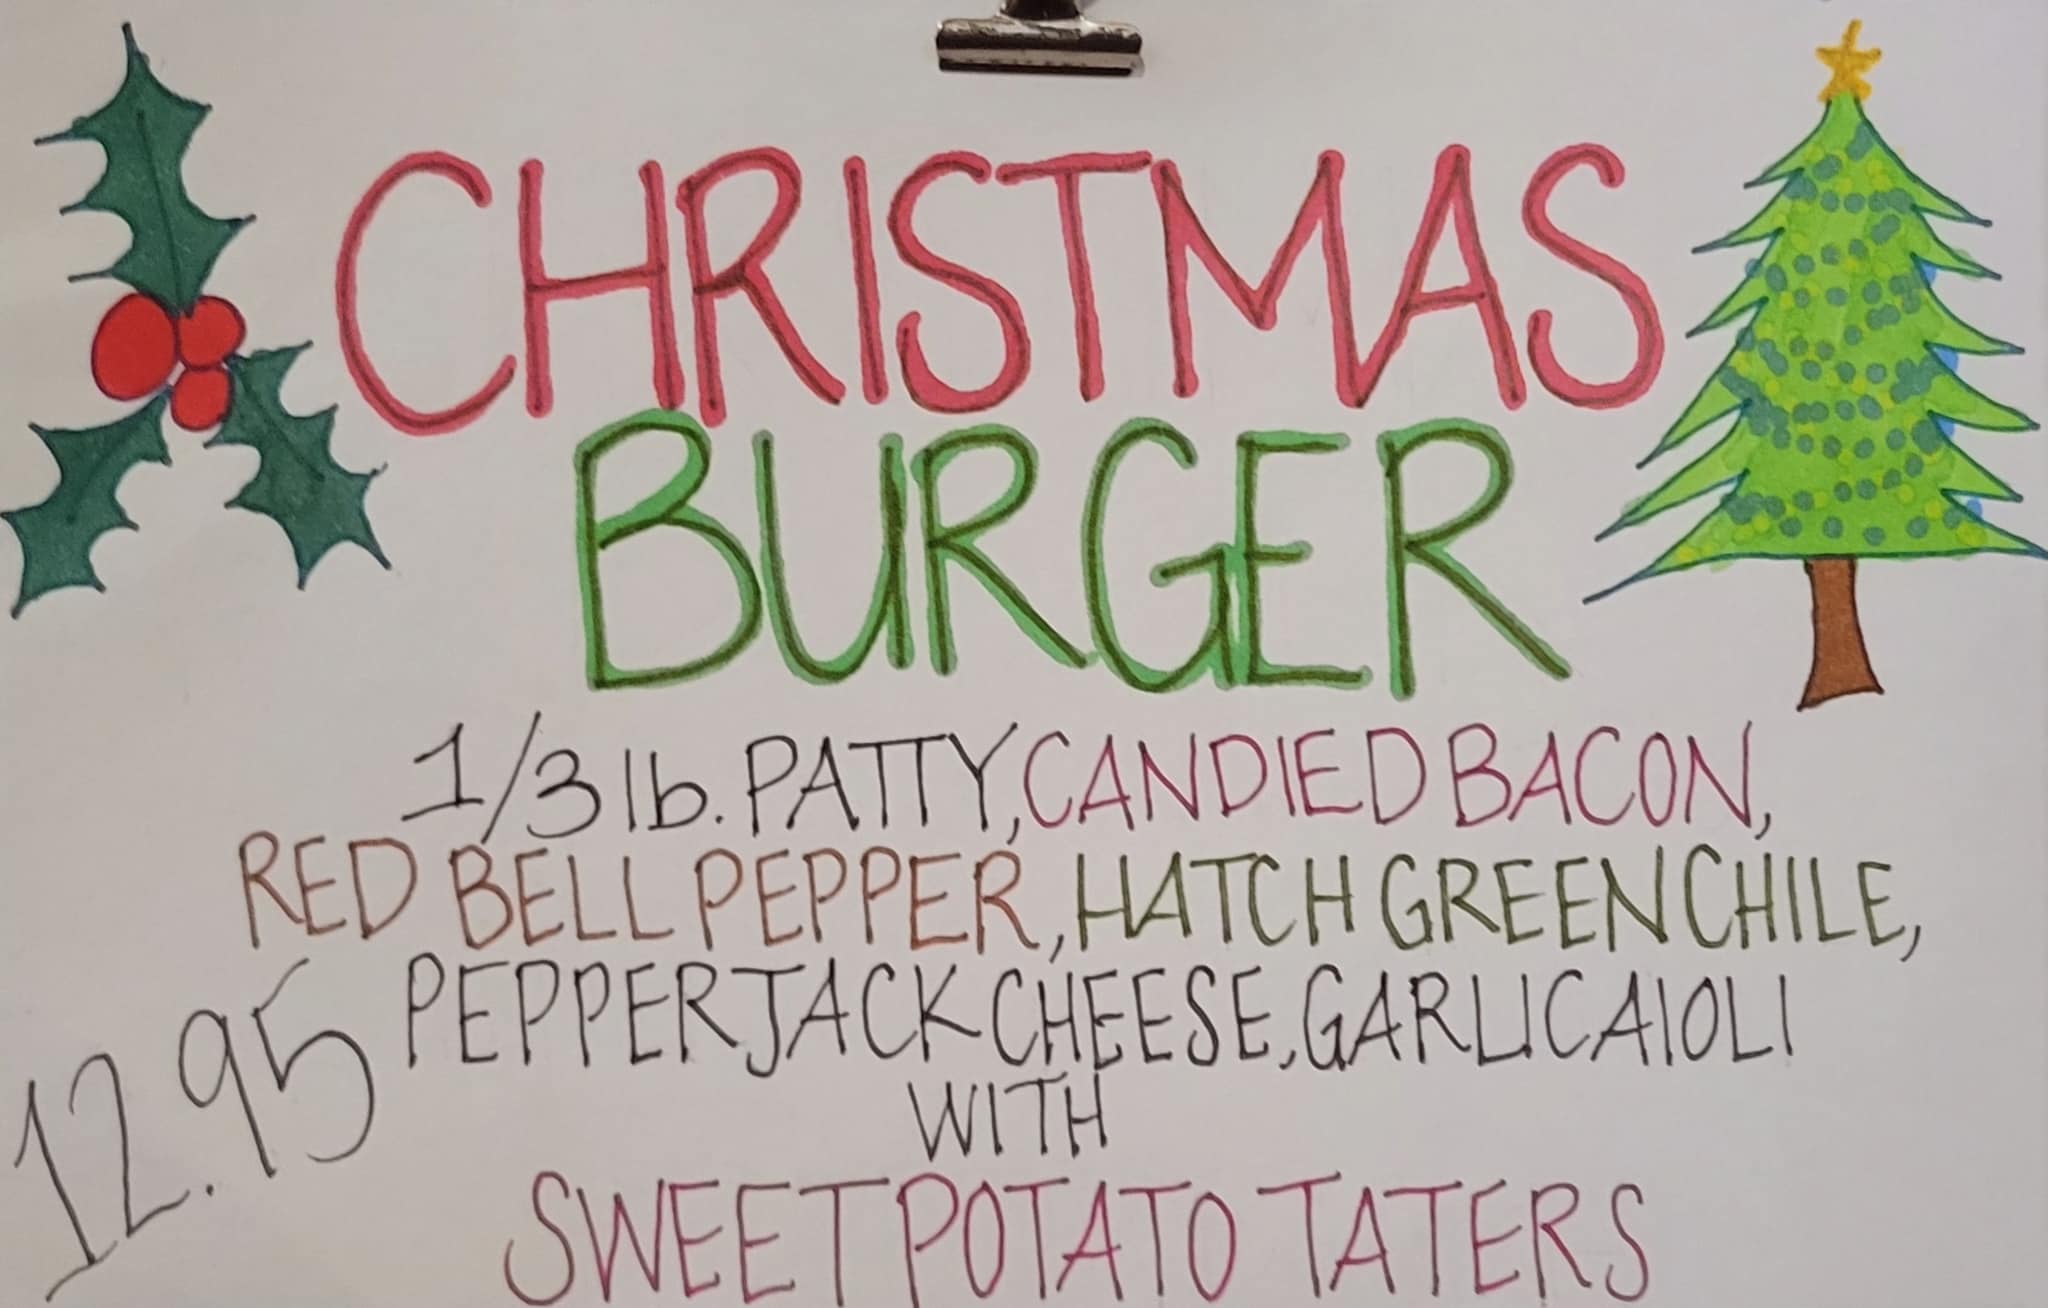 CHRISTMAS
BURGER
1/3 lb. PATTY, CANDIED BACON,
RED BELL PEPPER, HATCH GREEN CHILE,
PEPPER JACK CHEESE, GARLIC AIOLI
WITH
SWEET POTATO TATERS
12.95